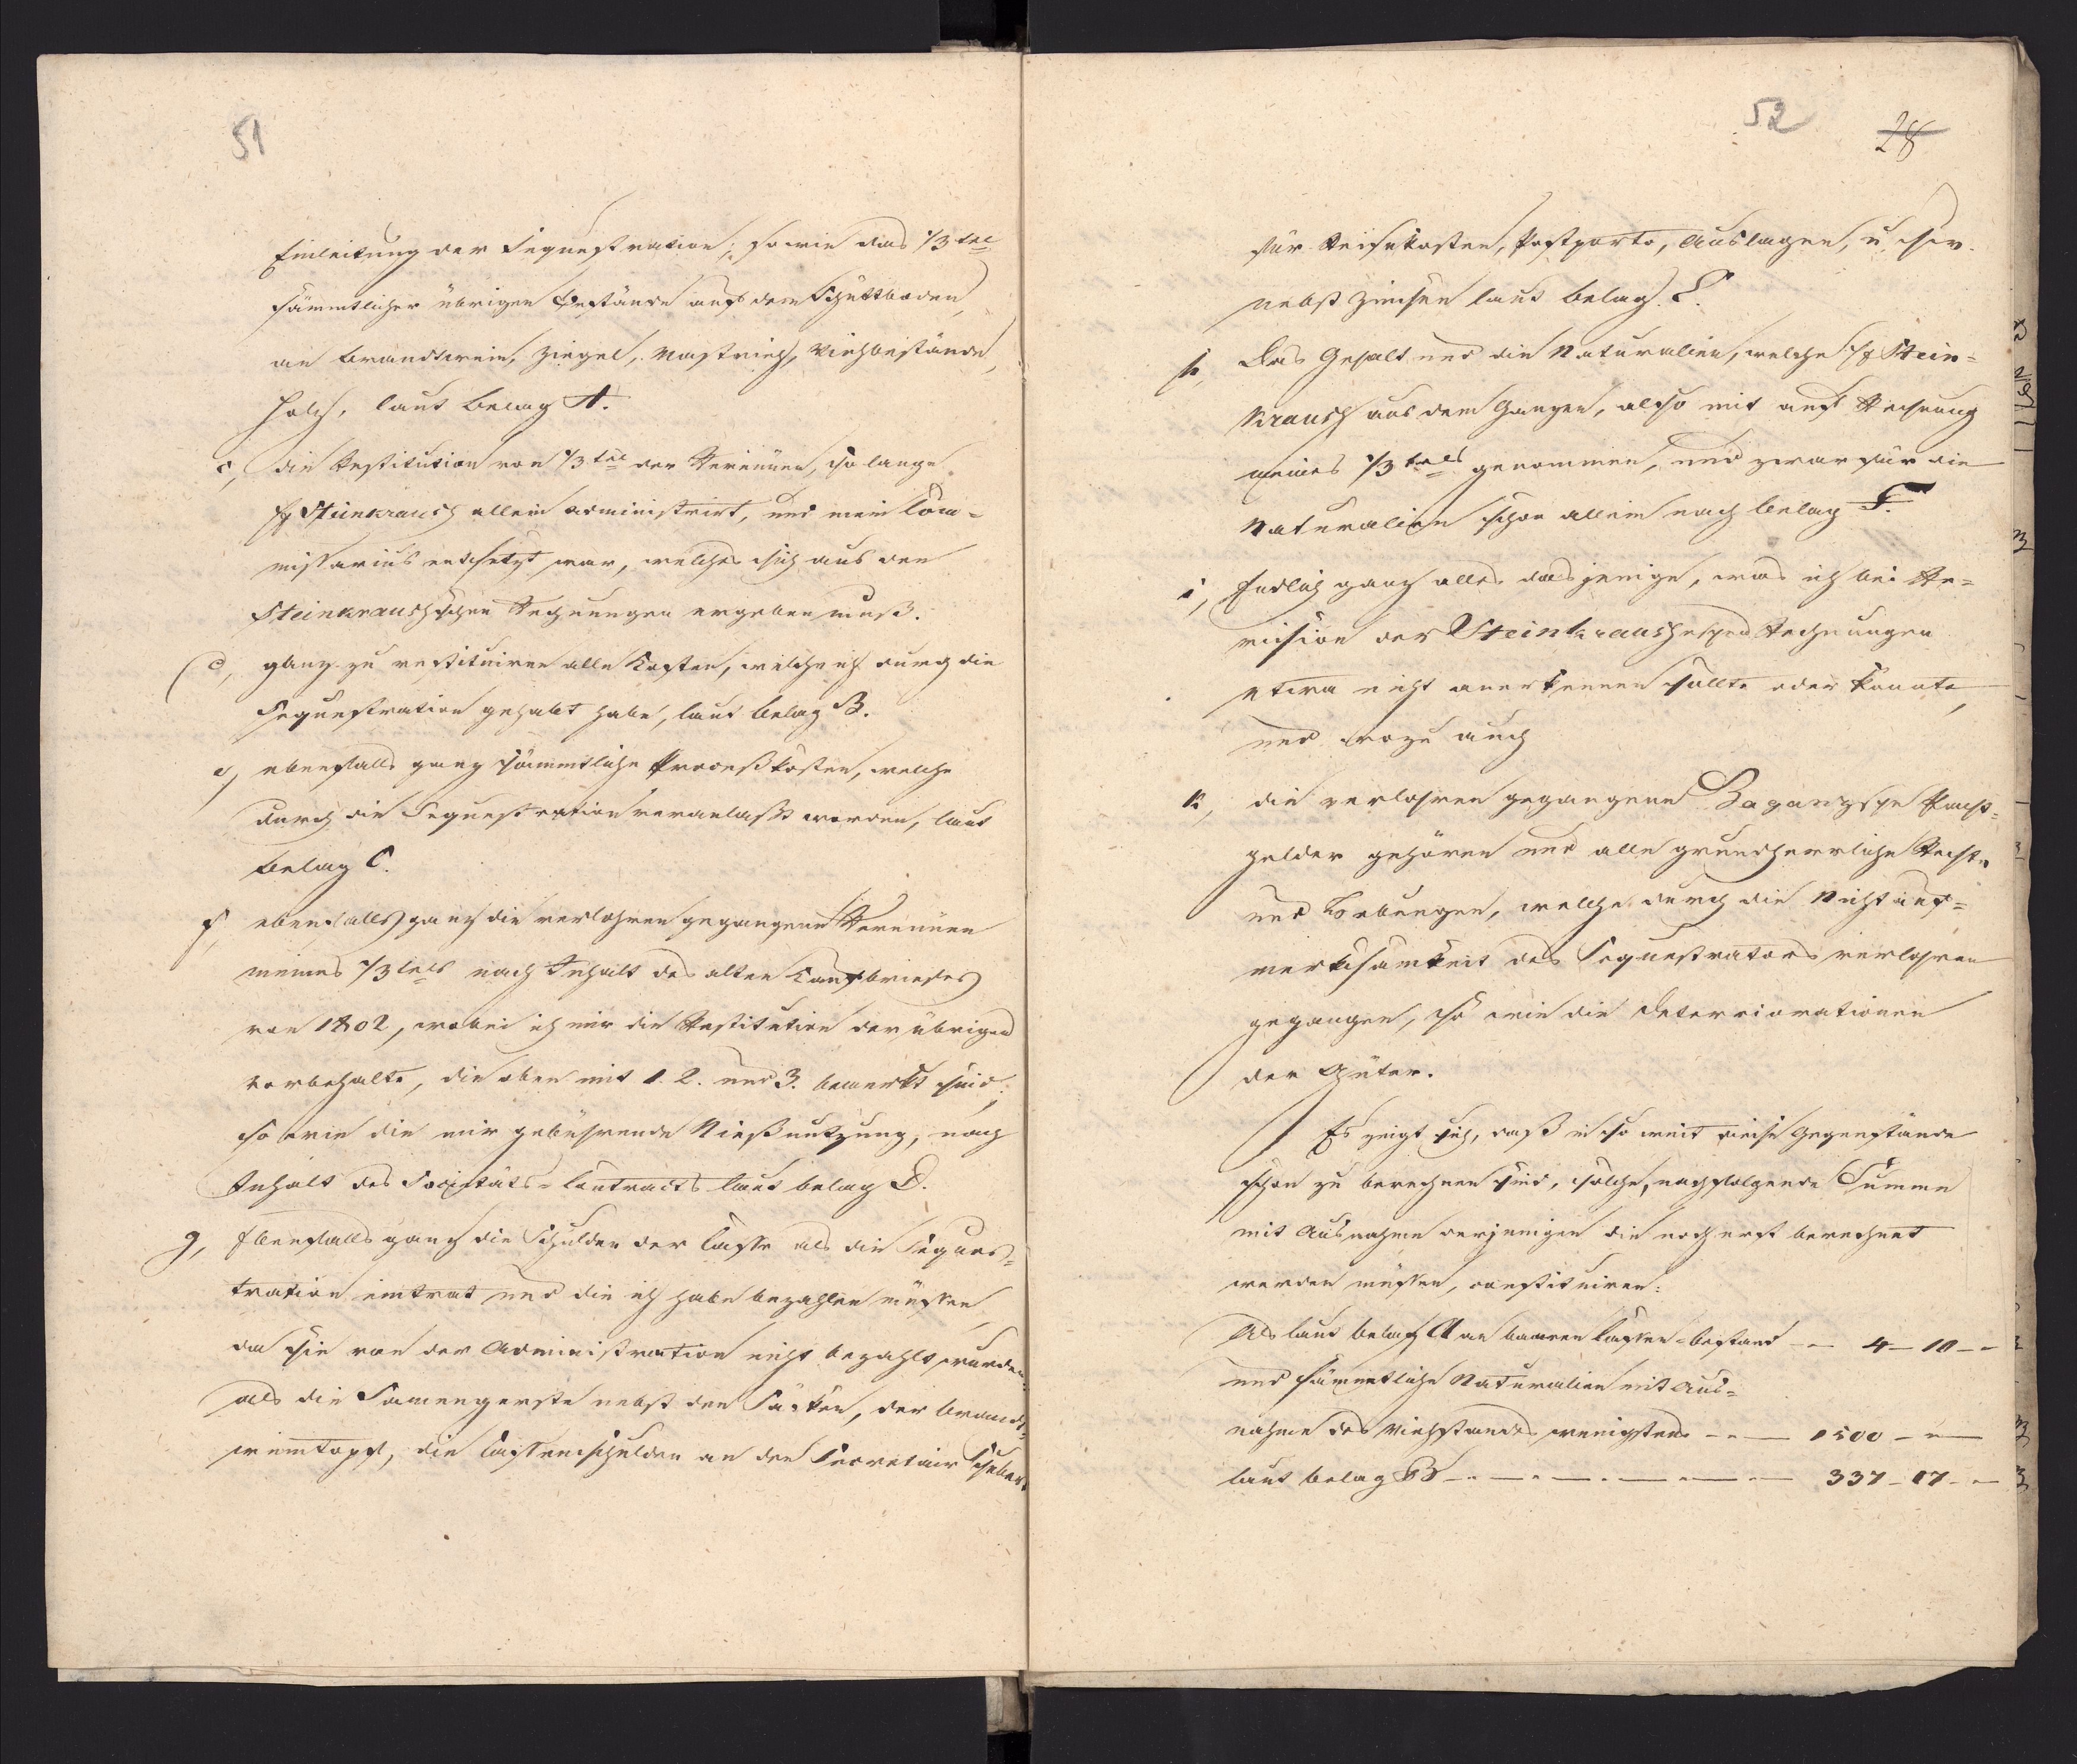 51
Einleitung der Sequestration; so wie das 1/3 tel
sämmtlicher übrigen Bestände auf dem Schüttboden,
an Brandtwein, Ziegel, Mastvieh, Viehbestände,
Holz, laut Belag A.
c, die Restitution von 1/3 tel der Revenüen, so lange
H Steinkrausch allein administrirt, und mein Com-
missarius entsetzt war, welches sich aus den
Steinkrauschschen Rechnungen ergeben muß.
d, ganz zu restituiren alle Kosten, welche ich durch die
Sequestration gehabt habe, laut Belag B.
e, ebenfalls ganz sämmtliche Proceßkosten, welche
durch die Sequestration veranlaßt worden, laut
Belag C.
f, ebenfalls ganz die verlohren gegangene Revenüen
meines 1/3 tels nach Inhalt des alten Kaufbriefes
von 1802, wobei ich mir die Restitution der übrigen
vorbehalte, die oben mit 1. 2. und 3. bemerkt sind;
so wie die mir gebührende Nießnutzung, nach
Inhalt des Societäts-Contracts laut Belag D.
g, Ebenfalls ganz die Schulden der Casse als die Seques-
tration eintrat und die ich habe bezahlen müssen
da sie von der Administration nicht bezahlt wurden.
als die Samengerste nebst den Säcken, der Brandt-
weintopf, die Cassenschulden an den Secretair
52
28
für Reisekosten, Postporto, Auslagen, u. s. w.
nebst Zinsen laut Belag E.
h, Das Gehalt und die Naturalien, welche H Stein-
krausch aus dem Ganzen, also mit auf Rechnung
meines 1/3 tels genommen, und zwar für die
Naturalien schon allein nach Belag F.
i, Endlich ganz alles dasjenige, was ich bei Re-
vision der Steinkrauschschen Rechnungen
etwa nicht anerkennen sollte oder könnte,
und wozu auch
k, die verlohren gegangene Baganzsche Pacht-
gelder gehören und alle grundherrliche Rechte
und Hebungen, welche durch die Nichtauf-
merksamkeit des Sequestrators verlohren
gegangen, so wie die Deteriorationen
der Güter.
Es zeigt sich, daß in so weit diese Gegenstände
schon zu berechnen sind, solche, nachfolgende Summe
mit Ausnahme derjenigen die noch erst berechnet
werden müssen, constituiren:
Als laut Belag A an baaren Cassen-bestand - - 4 - 10 - -
und sämmtliche Naturalien mit Aus-
nahme des Viehstandes wenigstens - - - 1500 - - -
laut Belag B - - - - - - - - 337 - 17 - -